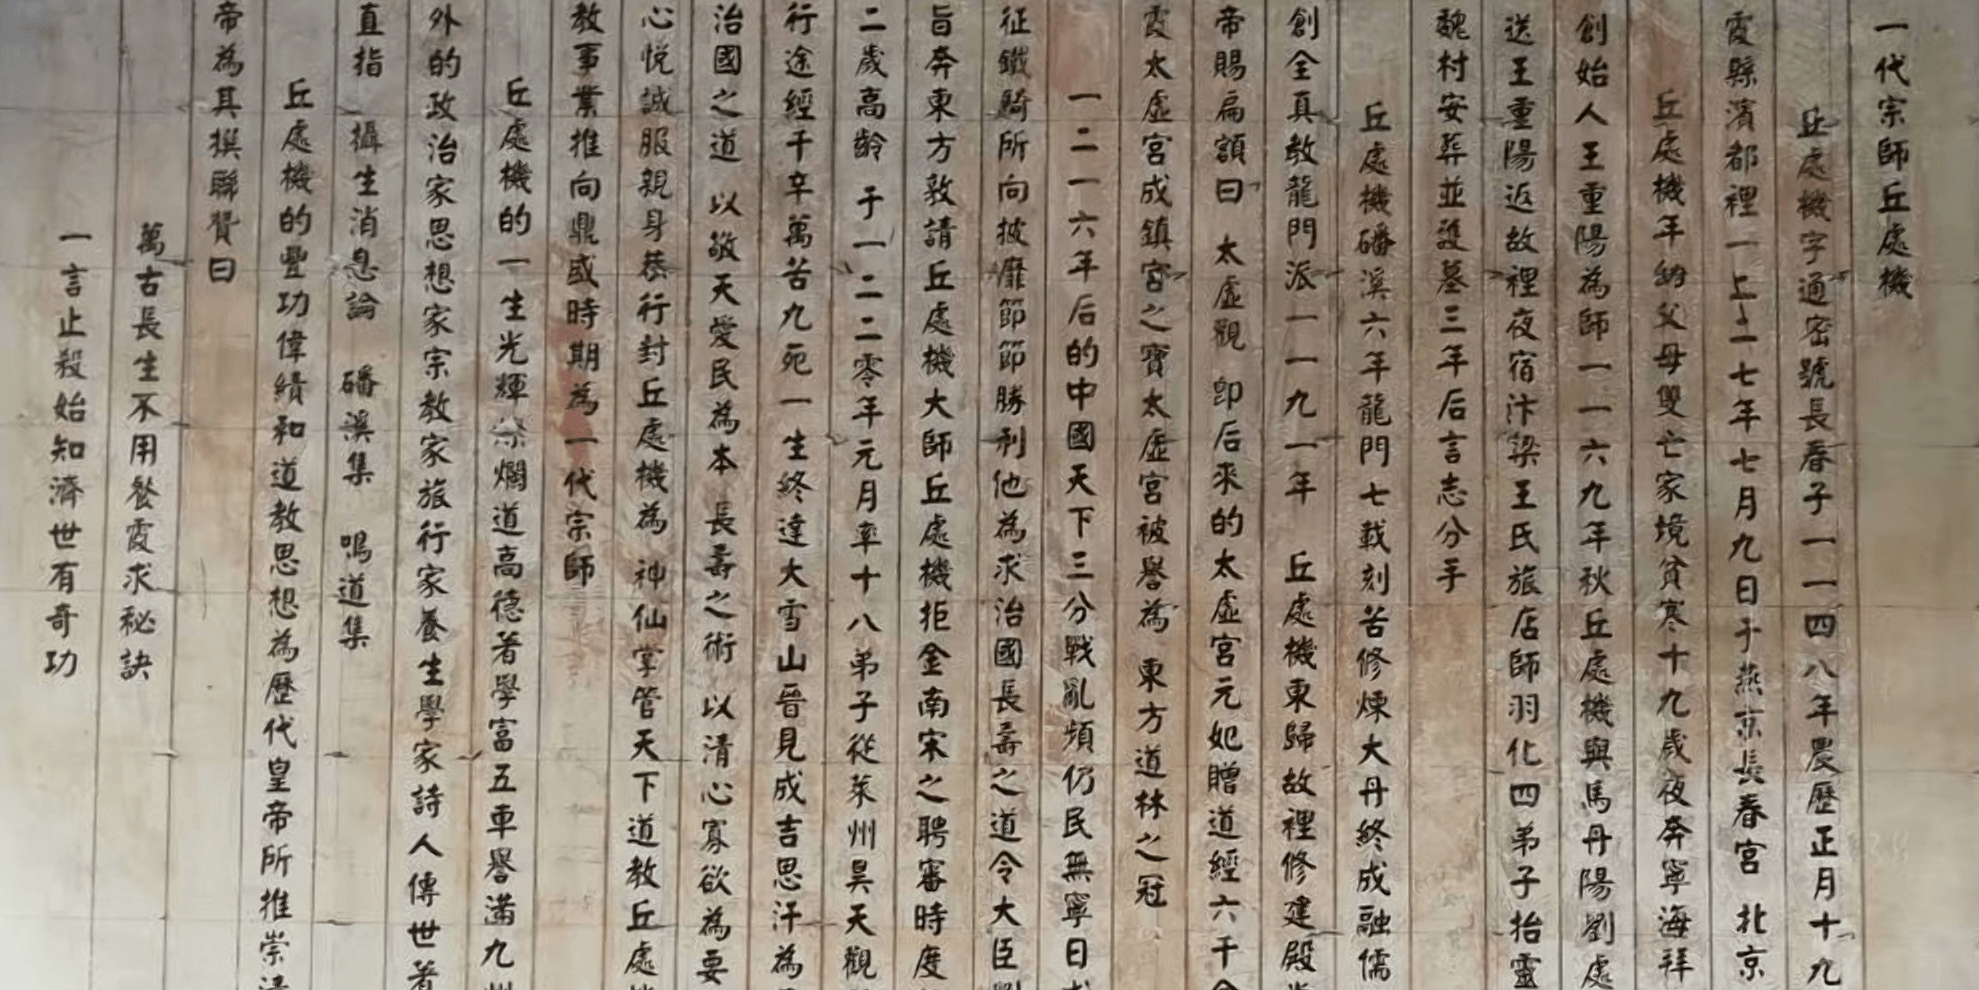 一代宗師丘處機
丘處機字通密號長春子一一四八年農歷正月十九
霞縣濱都裡一二二七年七月九日于燕京長春宮 北京
丘處機年幼父母雙亡家境貧寒十九歲夜奔寧海拜
創始人王重陽為師一一六九年秋丘處機與馬丹陽劉處
送王重陽返故裡夜宿汴梁王氏旅店師羽化四弟子抬靈
魏村安葬並護墓三年后言志分手
丘處機磻溪六年龍門七載刻苦修煉大丹終成融儒
創全真教龍門派一一九一年 丘處機東歸故裡修建殿
帝賜扁額曰 太虛觀 即后來的太虛宮元妃贈道經六千
霞太虛宮成鎮宮之寶太虛宮被譽為 東方道林之冠
一二一六年后的中國天下三分戰亂頻仍民無寧日
征鐵騎所向披靡節節勝利他為求治國長壽之道令大臣劉
旨奔東方敦請丘處機大師丘處機拒金南宋之聘審時度
二歲高齡 于一二二零年元月率十八弟子從萊州昊天觀
行途經千辛萬苦九死一生終達大雪山晉見成吉思汗為
治國之道 以敬天愛民為本 長壽之術 以清心寡欲為要
心悅誠服親身恭行封丘處機為 神仙掌管天下道教丘處
教事業推向鼎盛時期為一代宗師
丘處機的一生光輝燦爛道高德著學富五車譽滿九州
外的政治家思想家宗教家旅行家養生學家詩人傳世著
直指 攝生消息論 磻溪集 鳴道集
丘處機的豐功偉績和道教思想為歷代皇帝所推崇清
帝為其撰聯贊曰
萬古長生不用餐霞求秘訣
一言止殺始知濟世有奇功